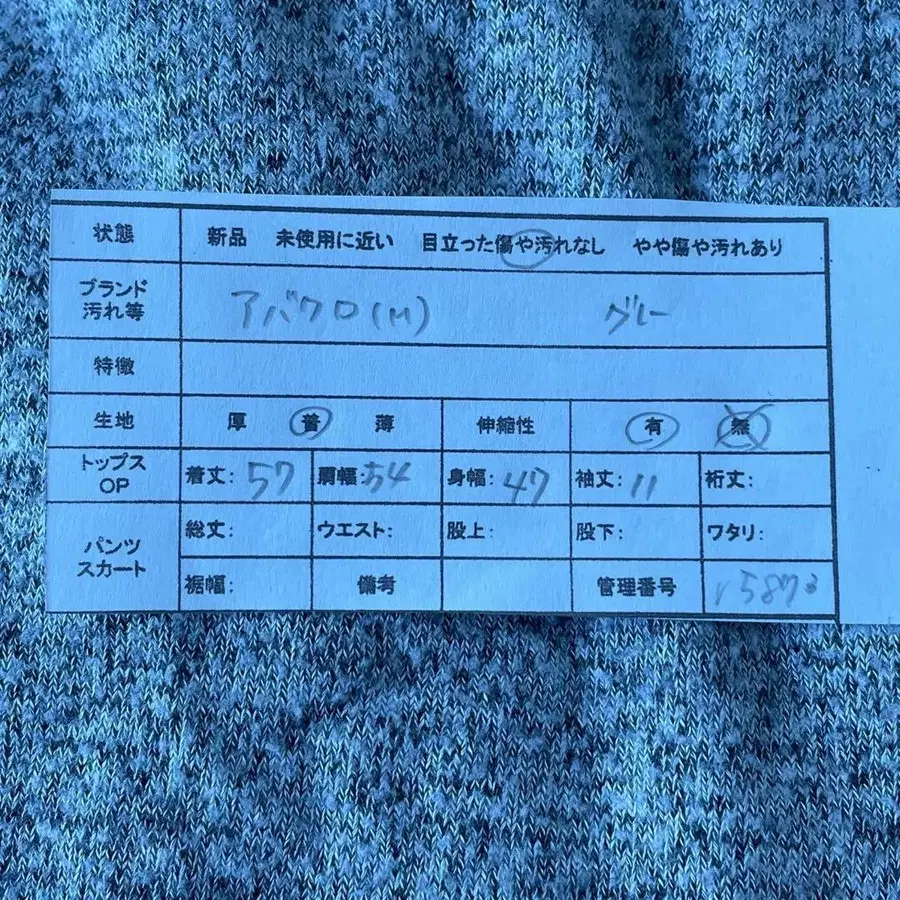 状態 新品 未使用に近い 目立った傷や汚れなし やや傷や汚れあり
ブランド
汚れ等 アバクロ(M) グレー
特徴
生地 厚 普 薄 伸縮性 有 無
トップス
OP 着丈:57 肩幅:54 身幅:47 袖丈:11 裄丈:
パンツ
スカート 総丈: ウエスト: 股上: 股下: ワタリ:
裾幅: 備考 管理番号